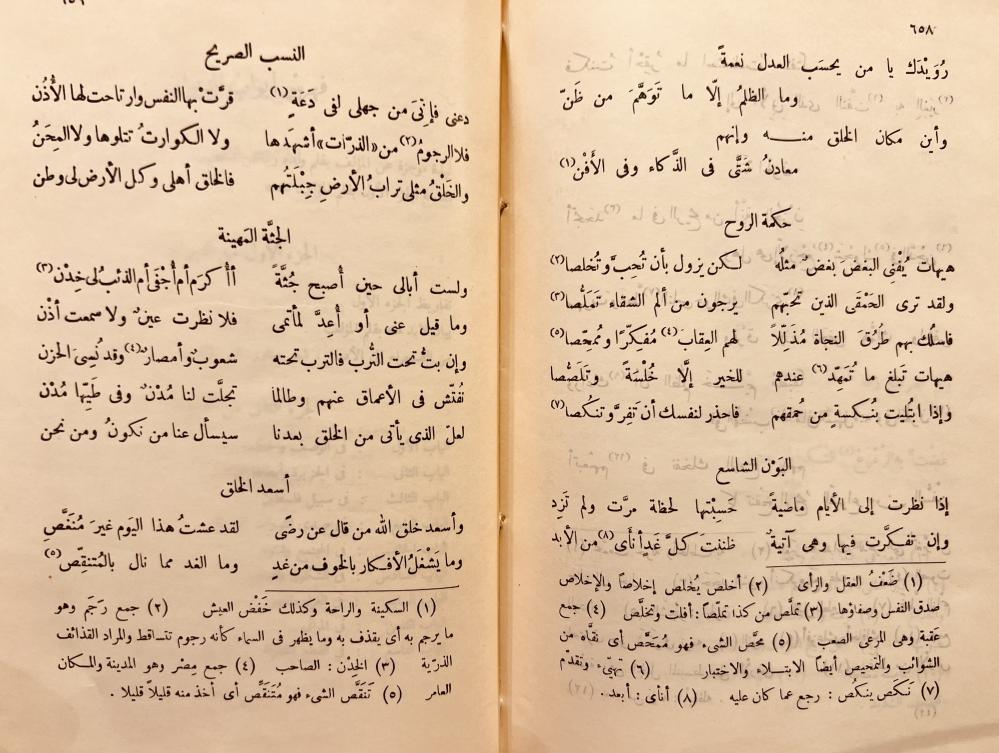 ٦٥٨
رُوَيْدَك يا من يحسَب العدل نعمةً
وما الظلمُ إلّا ما تَوَهَّمَ من ظَنّ
وأين مكان الخلق منـــه وإنهم
معادنُ شتَّى فى الذَّكاء وفى الأَفْن(١)
حكمة الروح
هيهات يُفْنِى البغضَ بغضٌ مثلُه لكن يزول بأن تُحِبَّ وتُخلصا(٢)
ولقد ترى الحَمْقَى الذين تحبّهم يرجون من ألم الشقاء تَمَلُّصا(٣)
فاسلُك بهم طُرُقَ النجاة مُذَلِّلًا لهم العِقابَ(٤) مُفكِّرًا وُممحِّصا(٥)
هيهات تَبلغ ما تَمَهّد(٦) عندهم للخير إلَّا خُلْسَةً وتلَصُّصا
وإذا ابتُليتَ بنُكسةٍ مِن حُمقهم فاحذر لنفسك أن تَفِرَّ وتنكُصا(٧)
البَوْن الشاسع
إذا نظرت إلى الأيام ماضيةً حَسِبْتَها لحظة مرَّت ولم تَزِد
وإن تفكَّرت فيها وهى آتيةٌ ظننتَ كلَّ غَدٍ أنأى(٨) من الأبد
(١) ضَعْفُ العقل والرأى (٢) أخلص يُخلص إخلاصاً والإخلاص
صدق النفس وصفاؤها (٣) تملَّص من كذا تملّصاً : أفلت وتخلَّص (٤) جمع
عَقبة وهى المرقى الصعب (٥) محَّص الشىء فهو مُمَحِّص أى نقَّاه من
الشوائب والتمحيص أيضاً الابتـلاء والاختبار (٦) تهيّء وتقدّم
(٧) نَكَص ينكُص : رجع عما كان عليه (٨) أنأى : أبعد .
النسب الصريح
دعنى فإنِّى مَن جهلى لفى دَعَةٍ(١) قرَّتْ بها النفس وارتاحت لها الأُذُن
فلا الرجومُ(٢) من «الذرّات» أشهدَها ولا الكوارثُ تتلوها ولا المِحَنُ
والخَلْقُ مثلى ترابُ الأرضِ جِبْلَتُهم فالخلق أهلى وكل الأرض لى وطن
الجثَّة المَهينة
ولست أبالى حين أُصبح جُثَّةً أأُكرَم أم أُجْفَى أم الذئبُ لى خِدْن(٣)
وما قيل عنى أو أُعِدَّ لمأتمى فلا نظرت عينٌ ولا سمعت أذْن
وإن بتُّ تحت التُّرب فالترب تحته شعوبٌ وأمصارٌ(٤) وقد نُسِىَ الحزن
نُفتّش فى الأعماق عنهم وطالما تجلَّت لنا مُدْنٌ وفى طَيِّها مُدْن
لعلّ الذى يأتى من الخلق بعدنا سيسأل عنا من نكونُ ومن نحن
أسعد الخلق
وأسعد خلق الله من قال عن رضًى لقد عشتُ هذا اليوم غيرَ مُنَغَّصِ
وما يَشْغَلُ الأفكار بالخوف من غدٍ وما الغد مما نال بالمُتنقِّص(٥)
(١) السكينة والراحة وكذلك خَفْض العيش (٢) جمع رَجَم وهو
ما يرجم به أى يقذف به وما يظهر فى السماء كأنه رجوم تتساقط والمراد القذائف
الذرّية (٣) الخِدْن : الصاحب (٤) جمع مِصْر وهو المدينة والمكان
العامر (٥) تَنَقَّص الشىء فهو مُتَنَقِّص أى أخذ منه قليلاً قليلا .